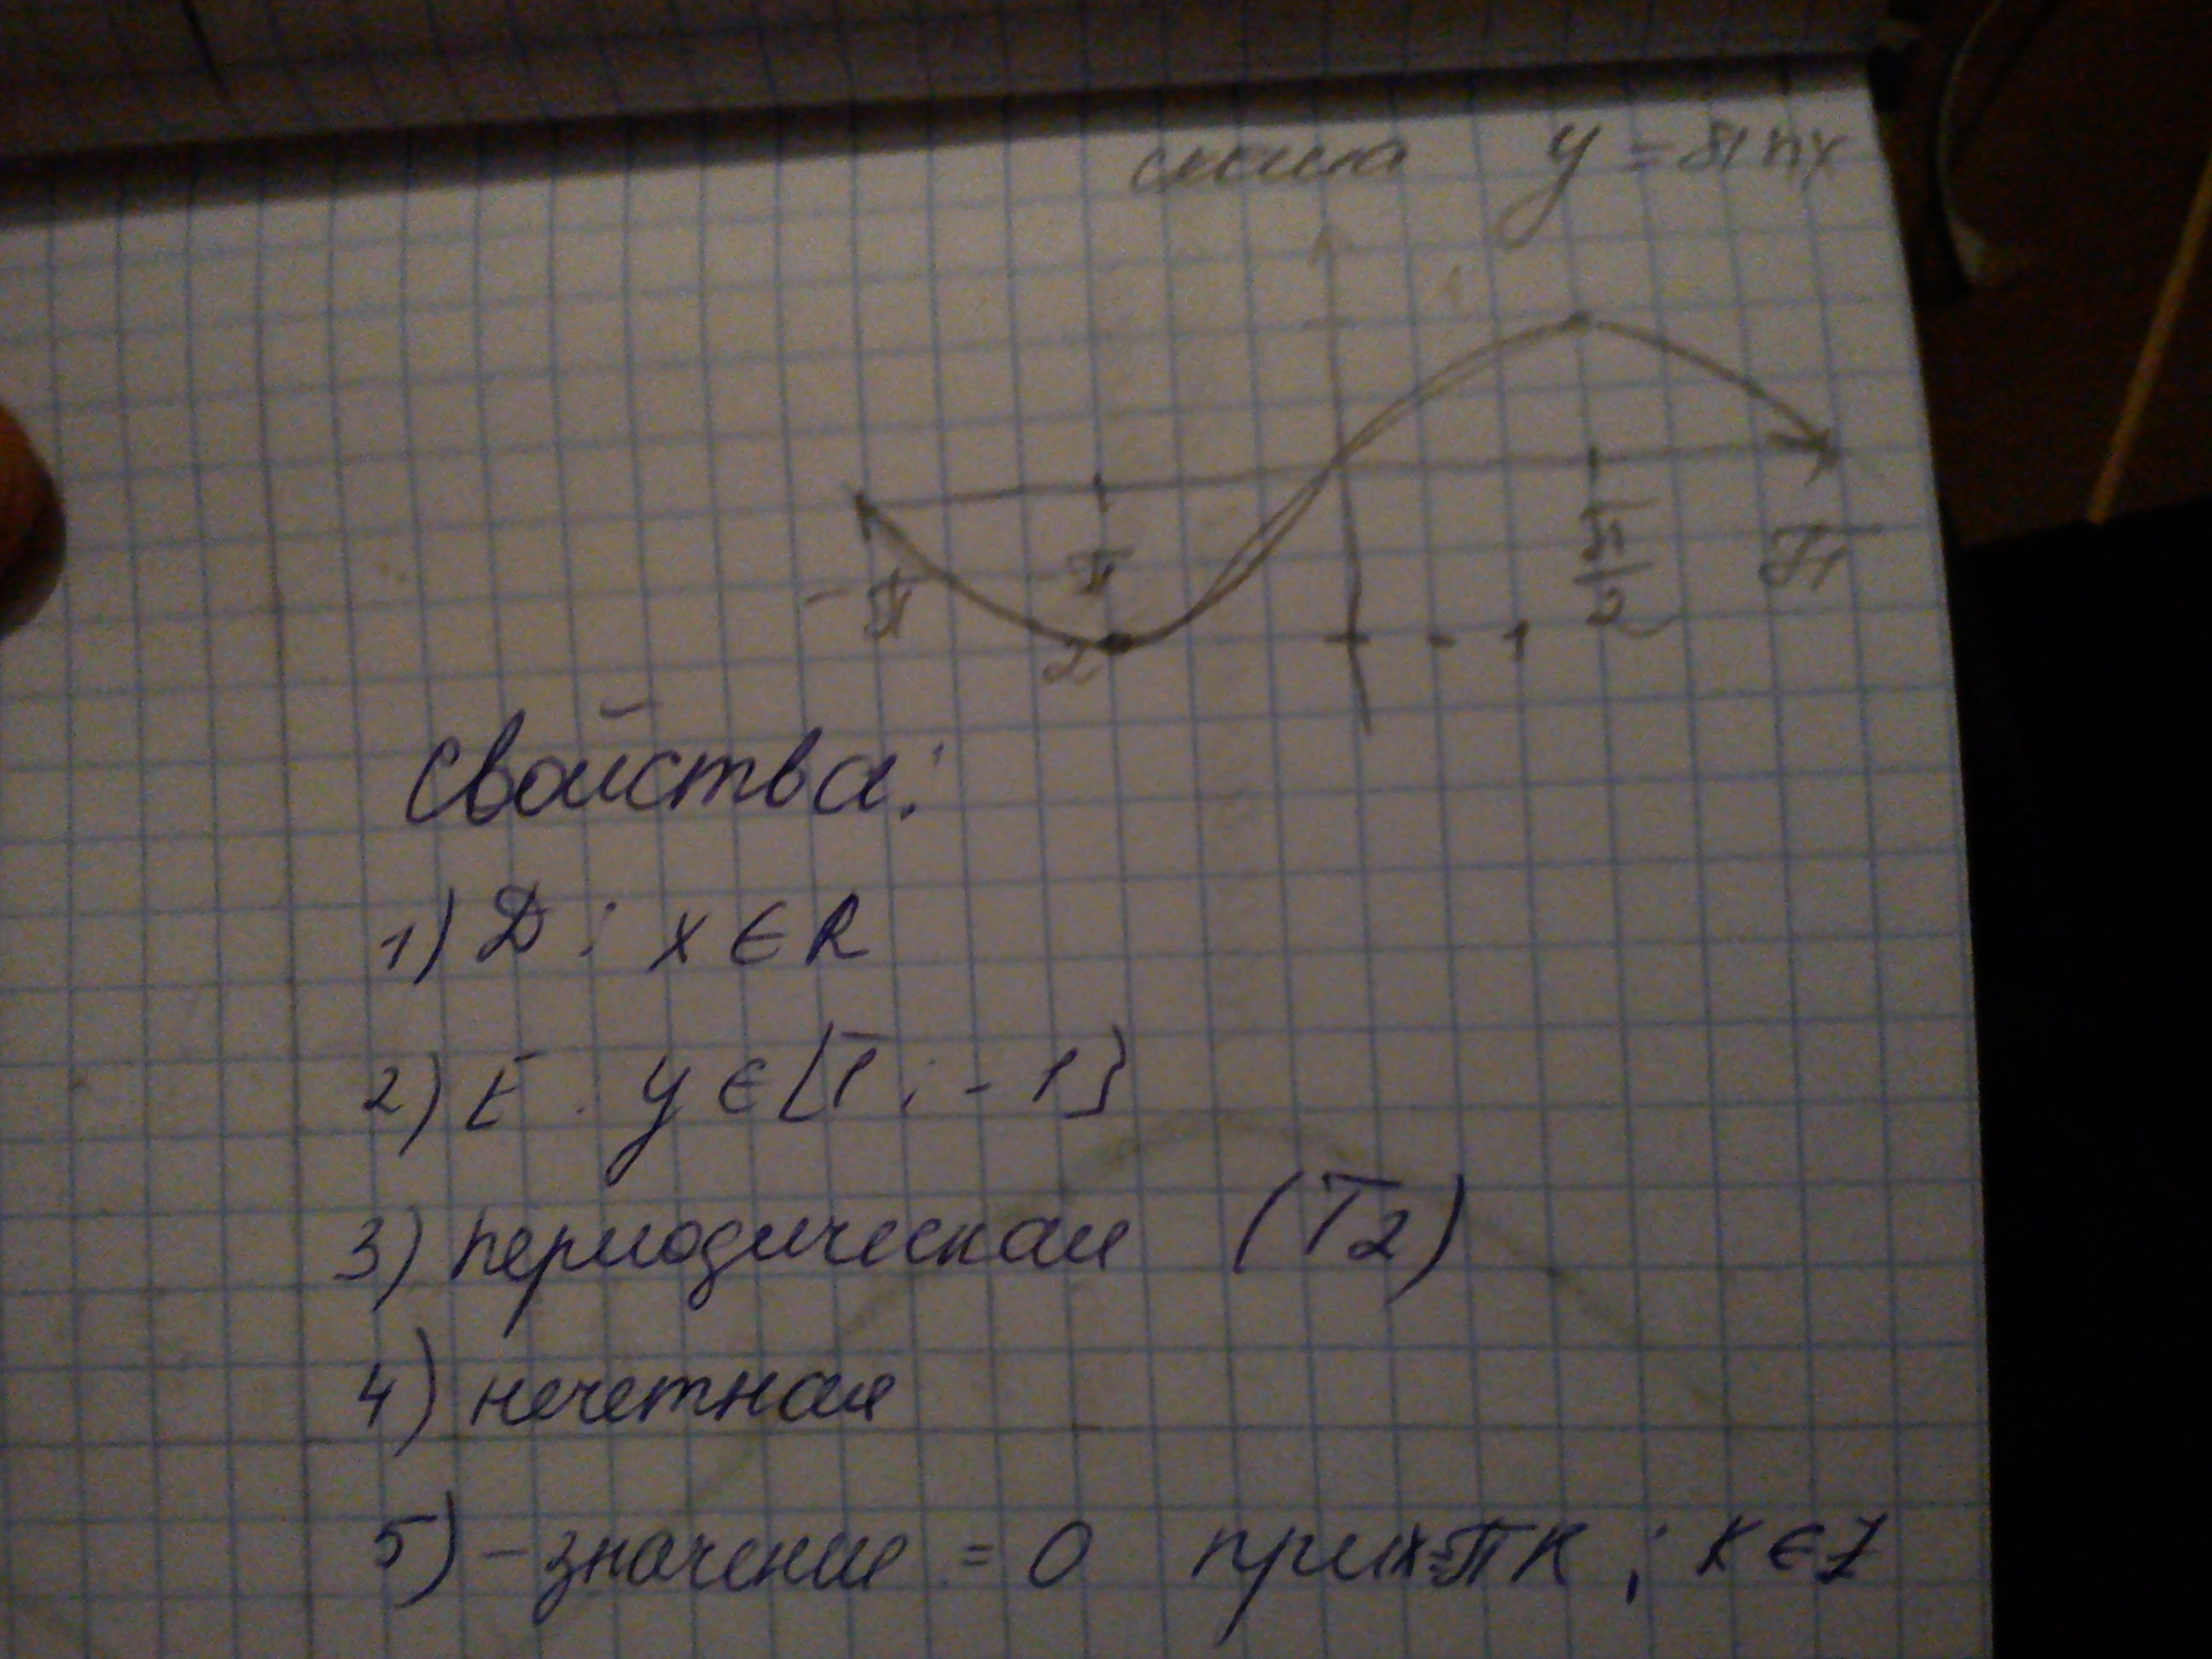 y = sinx
1
-π -π/2 π/2 π
-1
Свойства:
1) D : x ∈ R
2) E : y ∈ [1 ; -1]
3) периодическая (T2)
4) нечетная
5) - значение = 0 при x=πк ; к ∈ Z